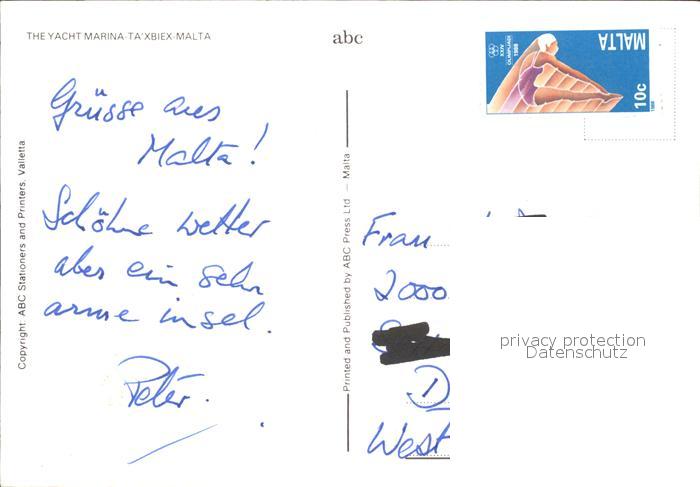 THE YACHT MARINA-TA'XBIEX-MALTA
abc
XXIV
OLIMPIADI
1988
MALTA
10c
1988
Grüsse aus
Malta!
Schöhne wetter
aber ein sehr
arme insel.
Peter.
Copyright: ABC Stationers and Printers, Valletta
Printed and Published by ABC Press Ltd — Malta
Frau
2000
D
West
privacy protection
Datenschutz